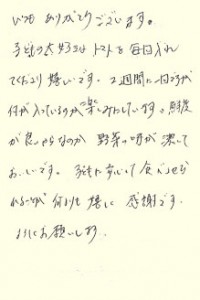 いつもありがとうございます。
子どもの大好きなトマトを毎回入れ
てくださり嬉しいです。2週間に一回ですが
何が入っているのか楽しみにしています。鮮度
が良いからなのか 野菜の味が濃くて
おいしいです。子どもに安心して食べさせら
れるのが何よりも嬉しく感謝です。
よろしくお願いします。